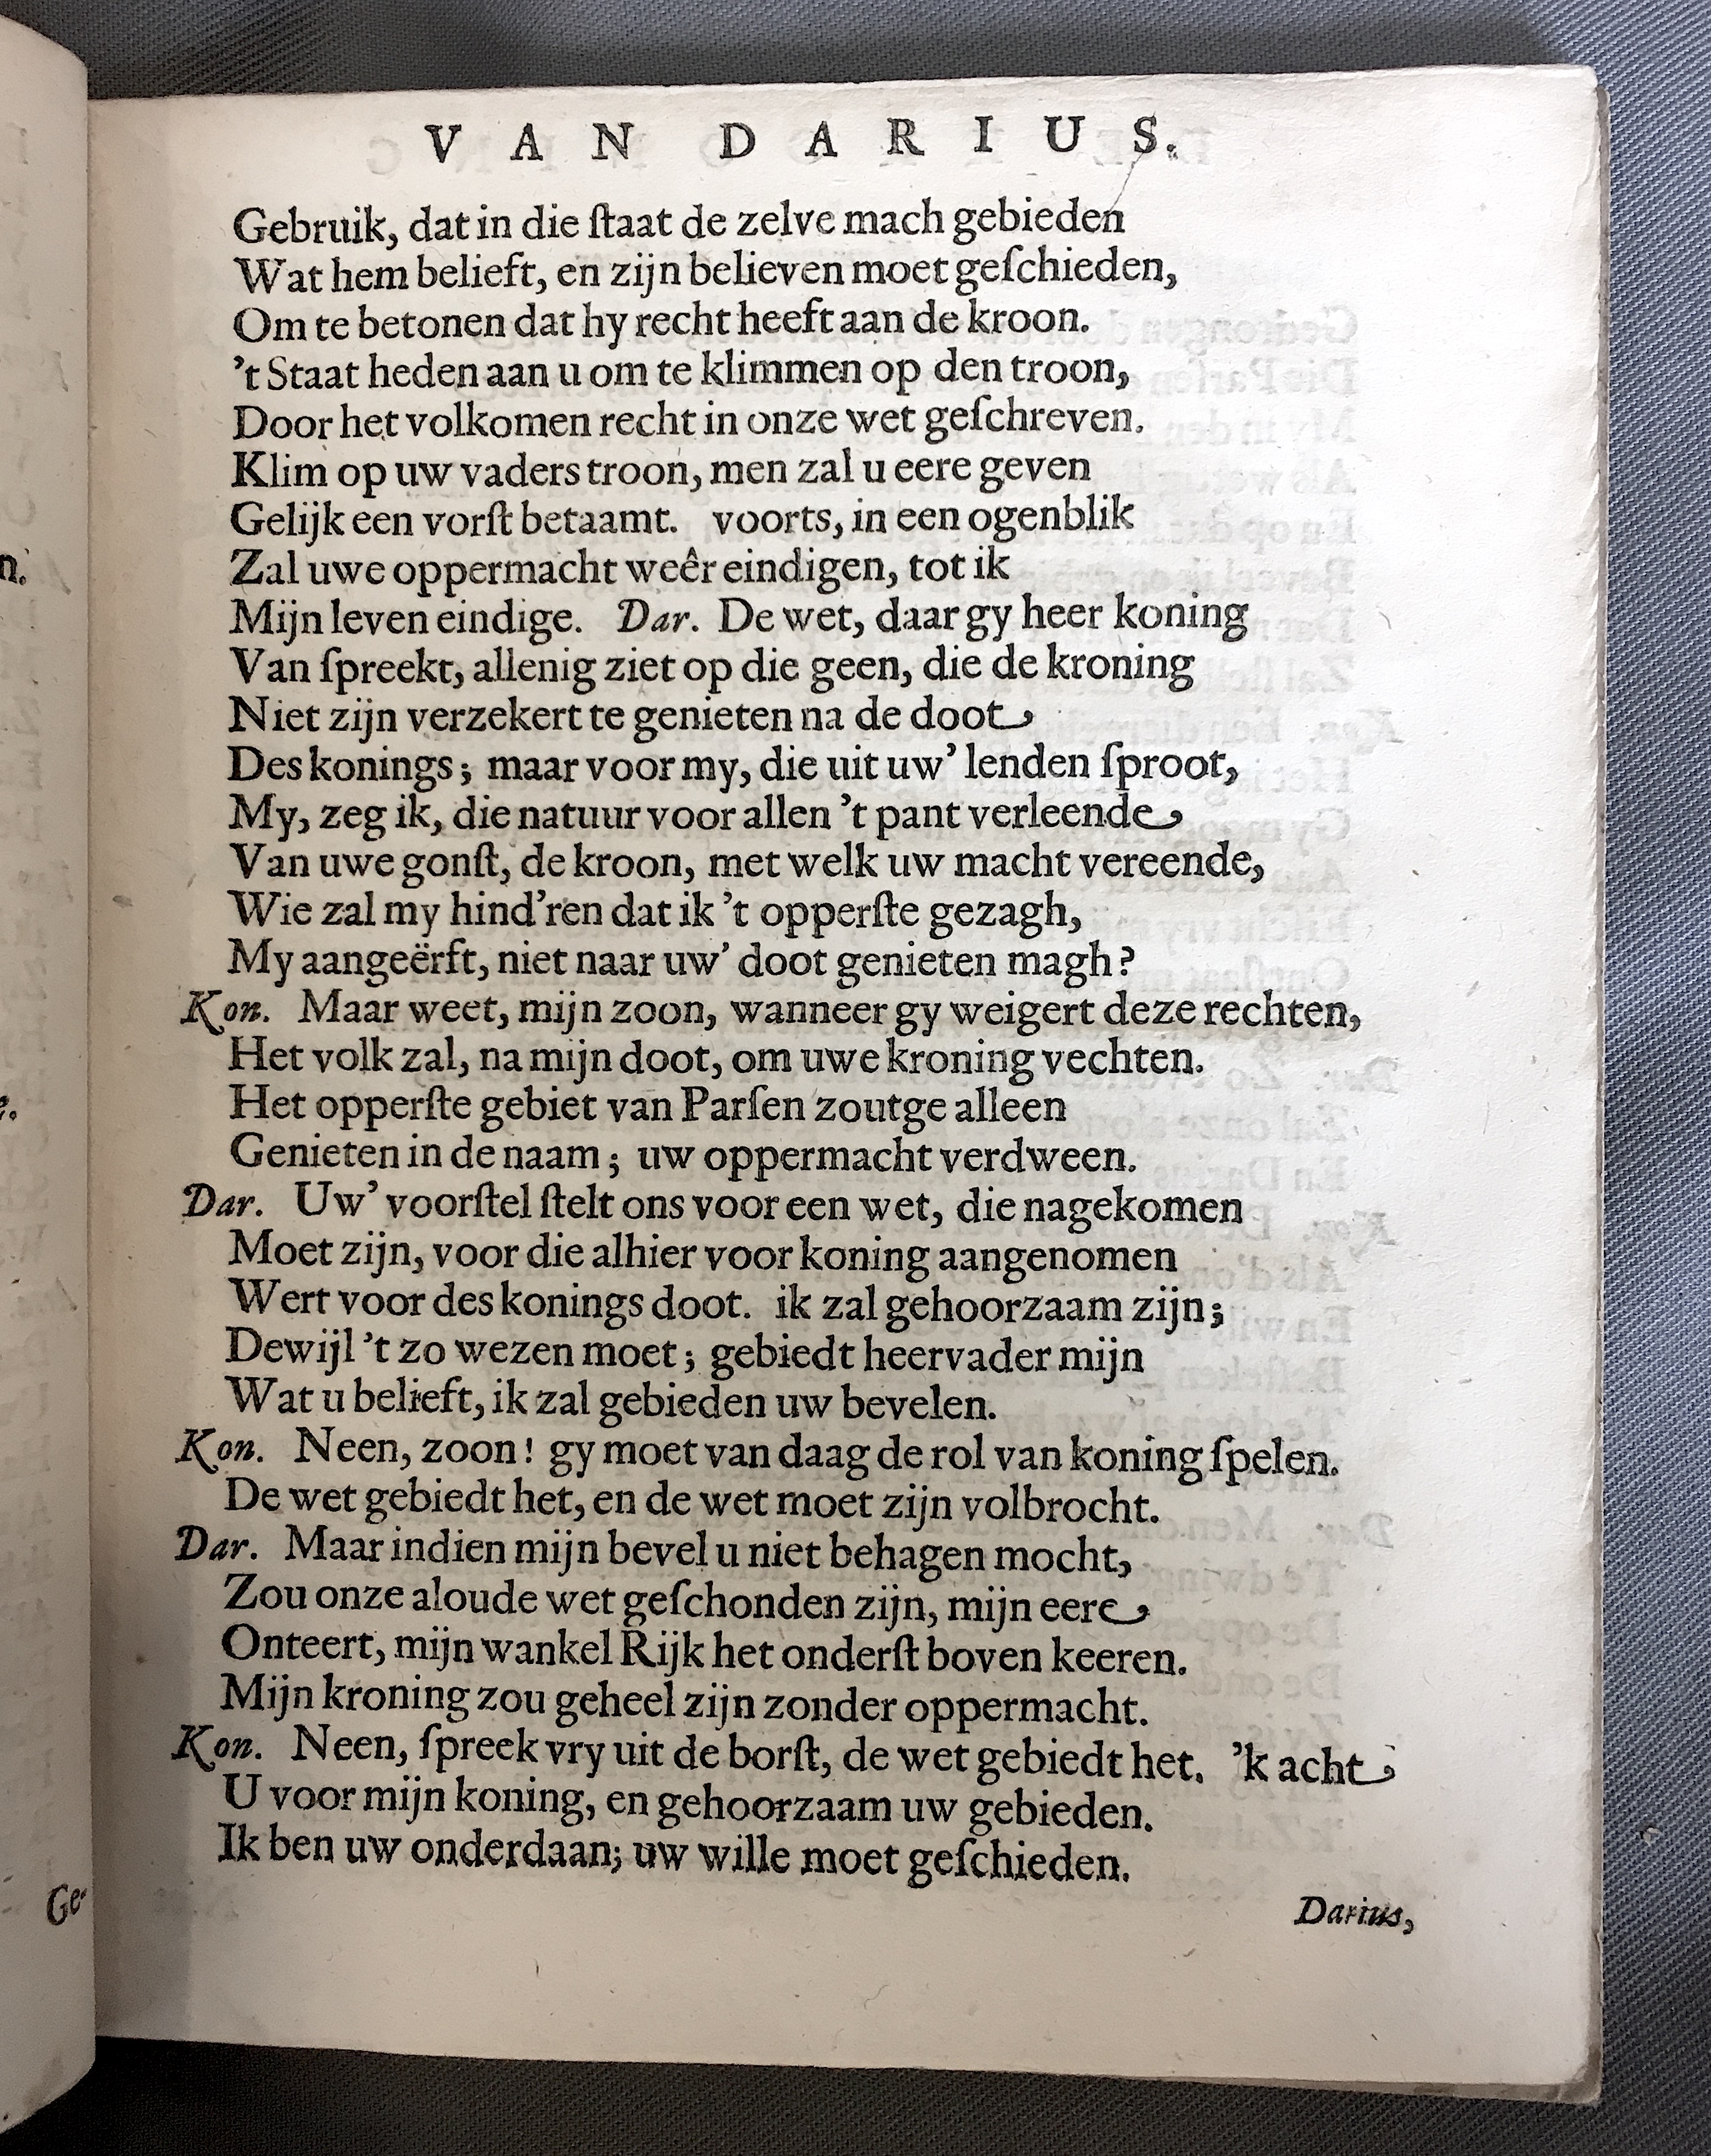 VAN DARIUS.
Gebruik, dat in die ſtaat de zelve mach gebieden
Wat hem belieft, en zijn believen moet geſchieden,
Om te betonen dat hy recht heeft aan de kroon.
't Staat heden aan u om te klimmen op den troon,
Door het volkomen recht in onze wet geſchreven.
Klim op uw vaders troon, men zal u eere geven
Gelijk een vorſt betaamt. voorts, in een ogenblik
Zal uwe oppermacht weêr eindigen, tot ik
Mijn leven eindige. Dar. De wet, daar gy heer koning
Van ſpreekt, allenig ziet op die geen, die de kroning
Niet zijn verzekert te genieten na de doot
Des konings; maar voor my, die uit uw' lenden ſproot,
My, zeg ik, die natuur voor allen 't pant verleende
Van uwe gonſt, de kroon, met welk uw macht vereende,
Wie zal my hind'ren dat ik 't opperſte gezagh,
My aangeërft, niet naar uw' doot genieten magh?
Kon. Maar weet, mijn zoon, wanneer gy weigert deze rechten,
Het volk zal, na mijn doot, om uwe kroning vechten.
Het opperſte gebiet van Parſen zoutge alleen
Genieten in de naam; uw oppermacht verdween.
Dar. Uw' voorſtel ſtelt ons voor een wet, die nagekomen
Moet zijn, voor die alhier voor koning aangenomen
Wert voor des konings doot. ik zal gehoorzaam zijn;
Dewijl 't zo wezen moet; gebiedt heervader mijn
Wat u belieft, ik zal gebieden uw bevelen.
Kon. Neen, zoon! gy moet van daag de rol van koning ſpelen.
De wet gebiedt het, en de wet moet zijn volbrocht.
Dar. Maar indien mijn bevel u niet behagen mocht,
Zou onze aloude wet geſchonden zijn, mijn eere
Onteert, mijn wankel Rijk het onderſt boven keeren.
Mijn kroning zou geheel zijn zonder oppermacht.
Kon. Neen, ſpreek vry uit de borſt, de wet gebiedt het. 'k acht
U voor mijn koning, en gehoorzaam uw gebieden.
Ik ben uw onderdaan; uw wille moet geſchieden.
Darius,